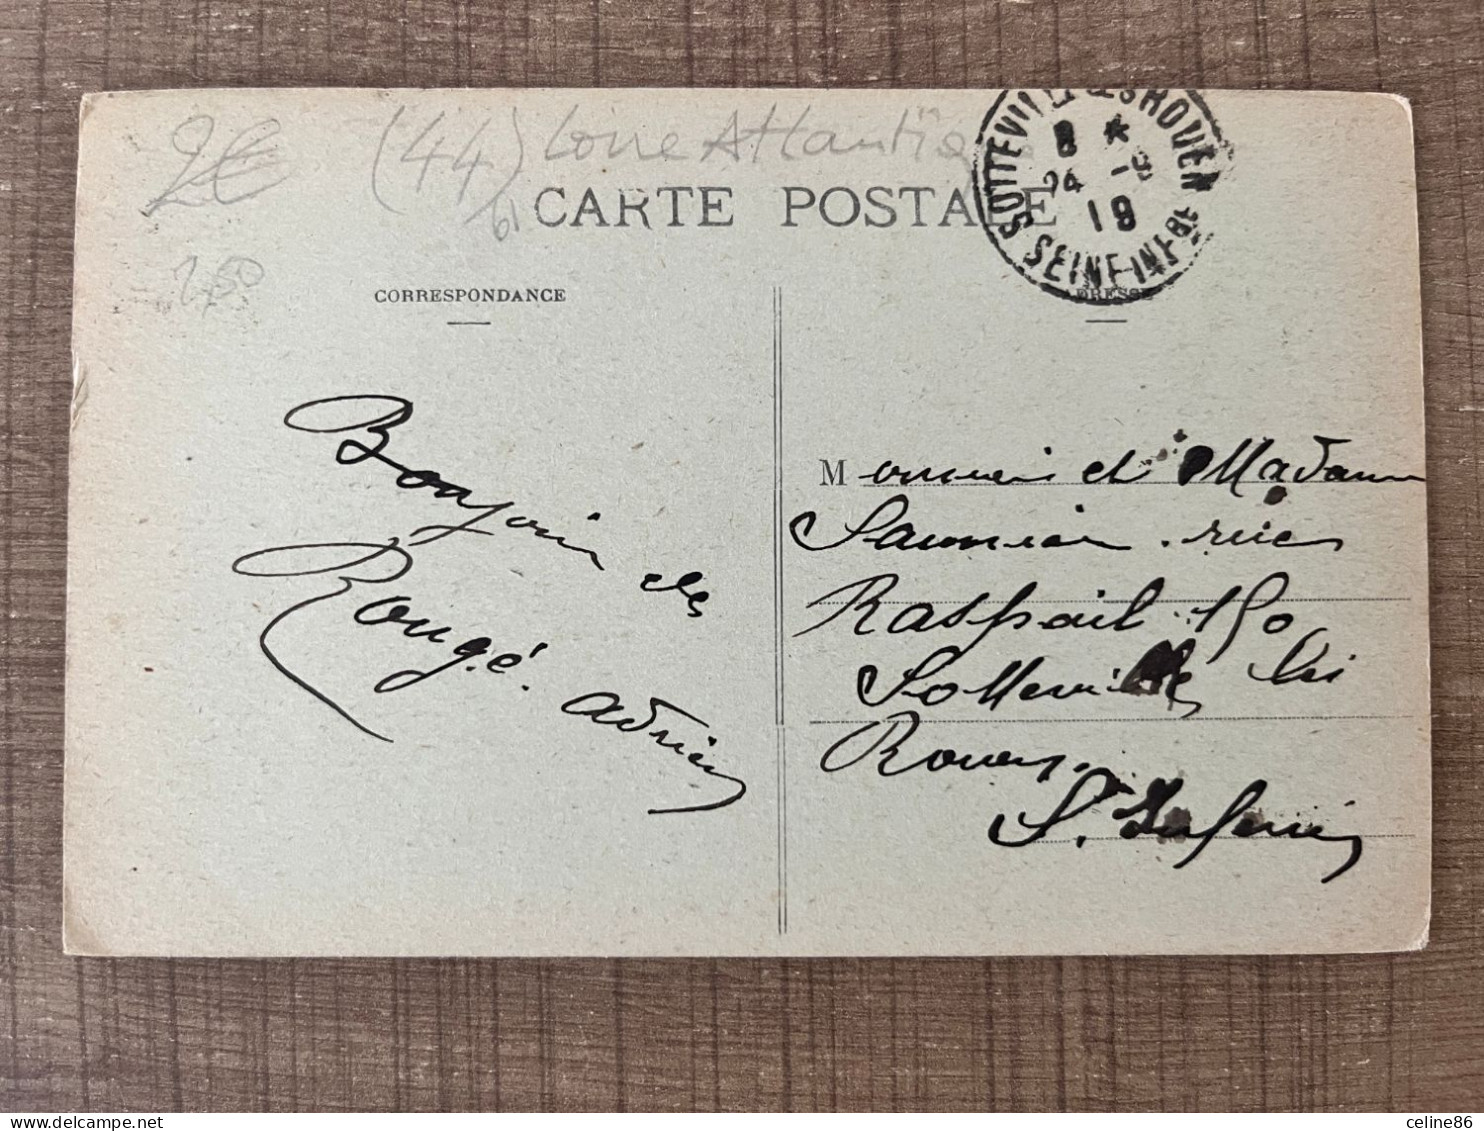 2€
(44) Loire Atlantiq
61
2,50
CARTE POSTALE
SOTTEVILLE-LES-ROUEN
8 *
24 -9
19
SEINE-INFRE
CORRESPONDANCE
ADRESSE
Bonjour de
Rougé.
adrien
Monsieur et Madame
Saunier. rue
Raspail 150
Sotteville les
Rouen.
S. Inferieu
celine86